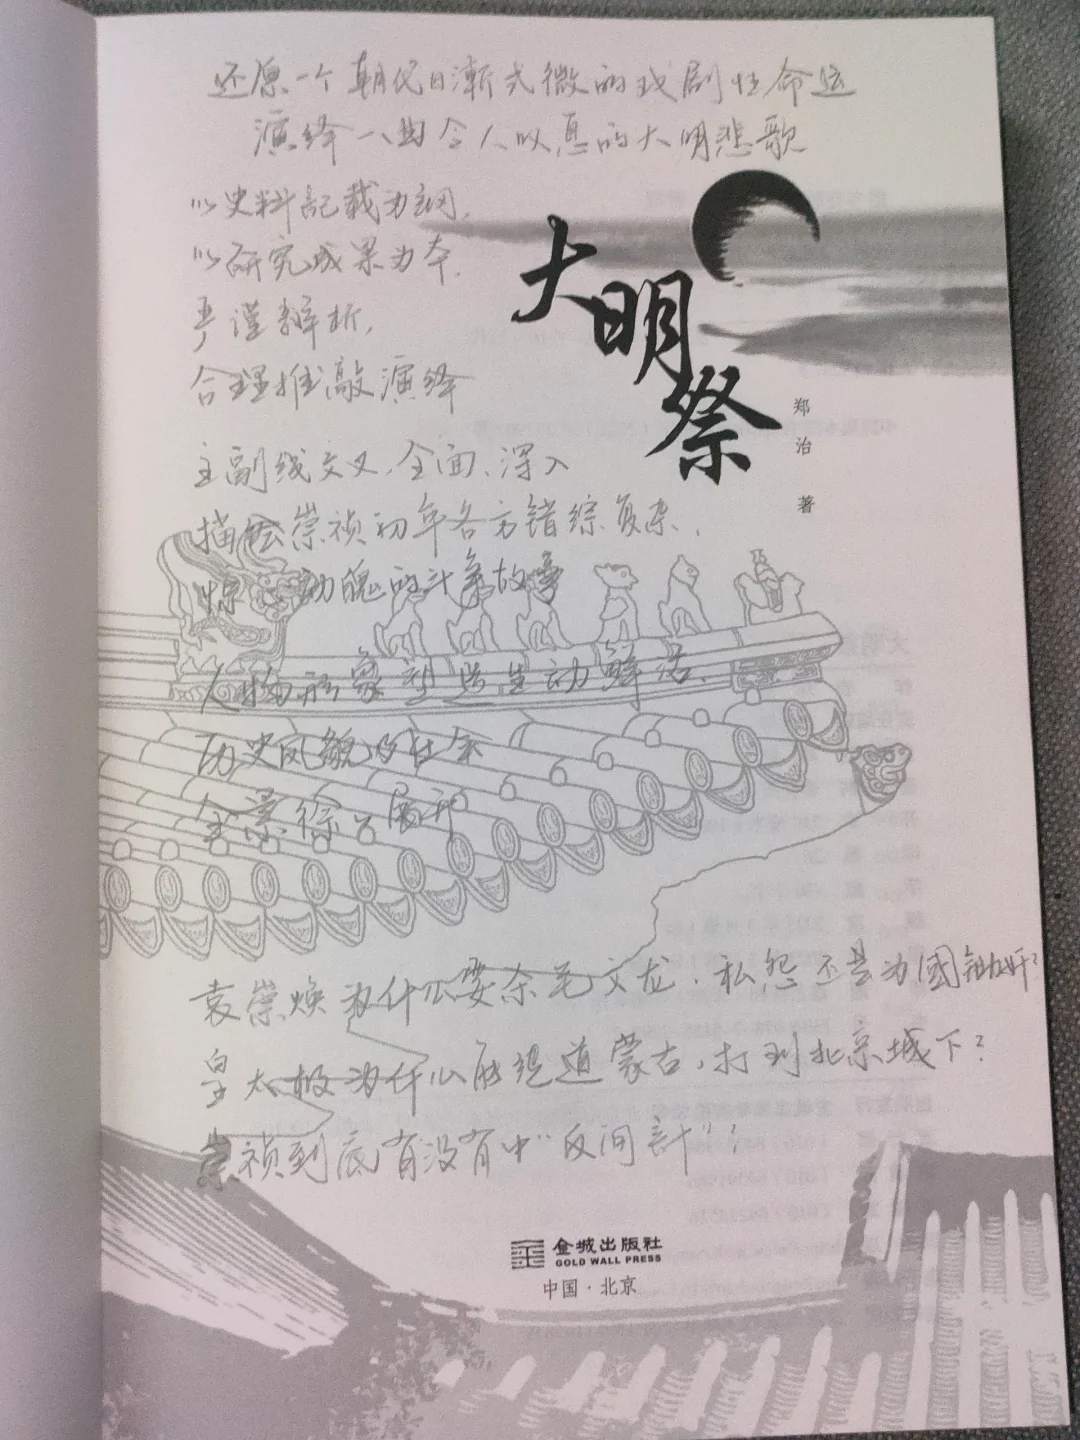 还原一个朝代日漸式微的戏剧性命运
演绎一曲令人叹息的大明悲歌
以史料記载为纲,
以研究成果为本.
严谨辨析,
合理推敲演绎
主副线交叉,全面、深入
描绘崇祯初年各方错综复杂、
惊 动魄的斗争故事
人物形象塑造生动鲜活.
历史风貌及社会
全景徐徐展开
大明祭
郑治 著
袁崇焕为什么要杀毛文龙.私怨还是为國锄奸?
皇太极为什么能绕道蒙古,打到北京城下?
崇祯到底有没有中"反间計"?
金城出版社
GOLD WALL PRESS
中国·北京